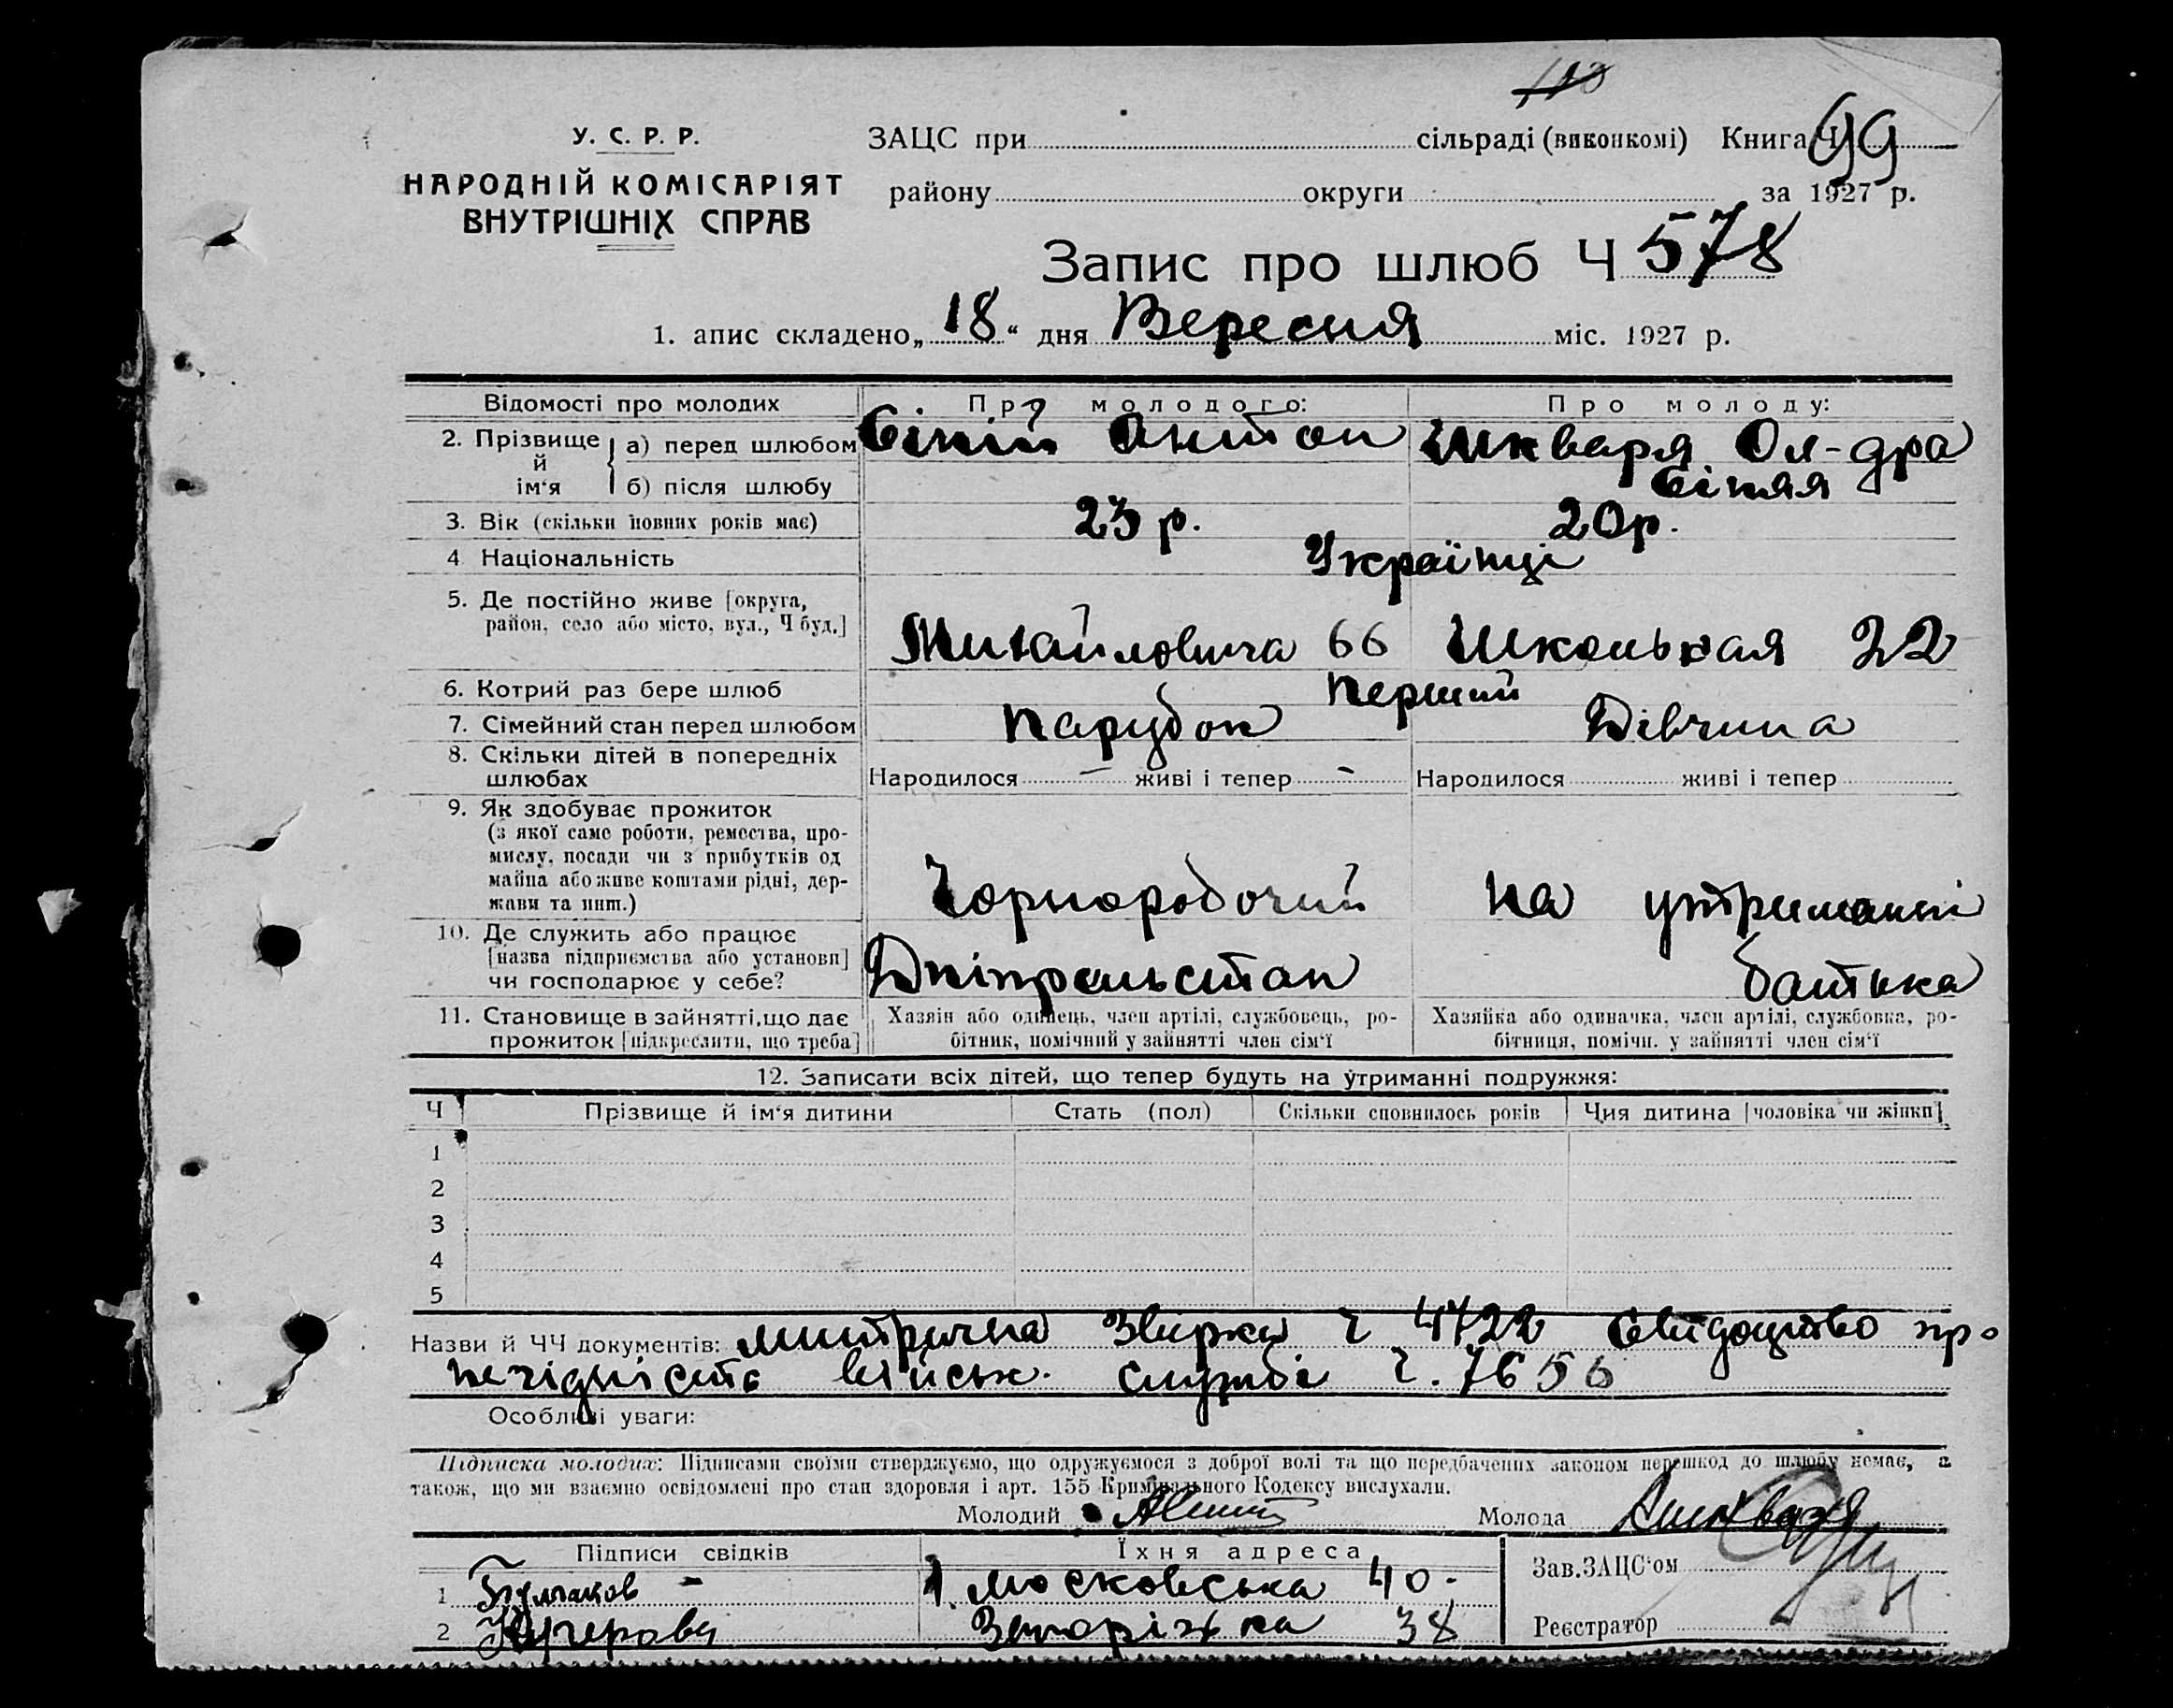 У. С. Р. Р.
НАРОДНІЙ КОМІСАРІЯТ
ВНУТРІШНІХ СПРАВ
ЗАЦС при сільраді (виконкомі) Книга Ч 99
району округи за 1927 р.
Запис про шлюб Ч 578
1. апис складено „18“ дня Вересня міс. 1927 р.
Відомості про молодих Про молодого: Про молоду:
2. Прізвище й ім‘я а) перед шлюбом Антон Шкваря Ол-дра
б) після шлюбу
3. Вік (скільки повних років має) 23 р. 20 р.
4 Національність Українці
5. Де постійно живе [округа,
район, село або місто, вул., Ч буд.] Михайловича 66 Школьная 22
6. Котрий раз бере шлюб Перший
7. Сімейний стан перед шлюбом Парубок Дівчина
8. Скільки дітей в попередніх
шлюбах Народилося — живі і тепер - Народилося живі і тепер
9. Як здобуває прожиток
(з якої саме роботи, ремества, про-
мислу, посади чи з прибутків од
майна або живе коштами рідні, дер-
жави та инш.) Чорноробочий На утриманні
10. Де служить або працює
[назва підприємства або установи]
чи господарює у себе? Дніпрельстан батька
11. Становище в зайнятті, що дає
прожиток [підкреслити, що треба]
Хазяін або одинець, член артілі, службовець, ро-
бітник, помічний у зайнятті член сім‘ї
Хазяйка або одиначка, член артілі, службовка, ро-
бітниця, помічн. у зайнятті член сім‘ї
12. Записати всіх дітей, що тепер будуть на утриманні подружжя:
Ч Прізвище й ім‘я дитини Стать (пол) Скільки сповнилось років Чия дитина [чоловіка чи жінки]
1
2
3
4
5
Назви й ЧЧ документів: митрична Звирка ч 4722 Свидоцтво про
негідність військ. службі ч. 7656
Особливі уваги:
Підписка молодих: Підписами своїми стверджуємо, що одружуємося з доброї волі та що передбачених законом перешкод до шлюбу немає, а
також, що ми взаємно освідомлені про стан здоровля і арт. 155 Кримінального Кодексу вислухали.
Молодий Молода Шкваря
Підписи свідків Їхня адреса Зав. ЗАЦС‘ом
1 1. Московська 40.
2 Кучерова Запоріжка 38 Реєстратор